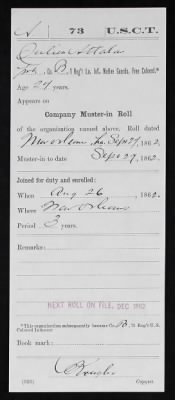 A 73 U.S.C.T.
Attala
Pvt., Co. B, 1 Reg't La. Inf. Native Guards, Free Colored.*
Age 24 years.
Appears on
Company Muster-in Roll
of the organization named above. Roll dated
New Orleans, La. Sept 27, 1862.
Muster-in to date Sept 27, 1862.
Joined for duty and enrolled:
When Aug 26, 1862.
Where New Orleans
Period 3 years.
Remarks:
NEXT ROLL ON FILE, DEC 1862
*This organization subsequently became Co. B, 73 Reg't U.S.
Colored Infantry.
Book mark:
Copyist.